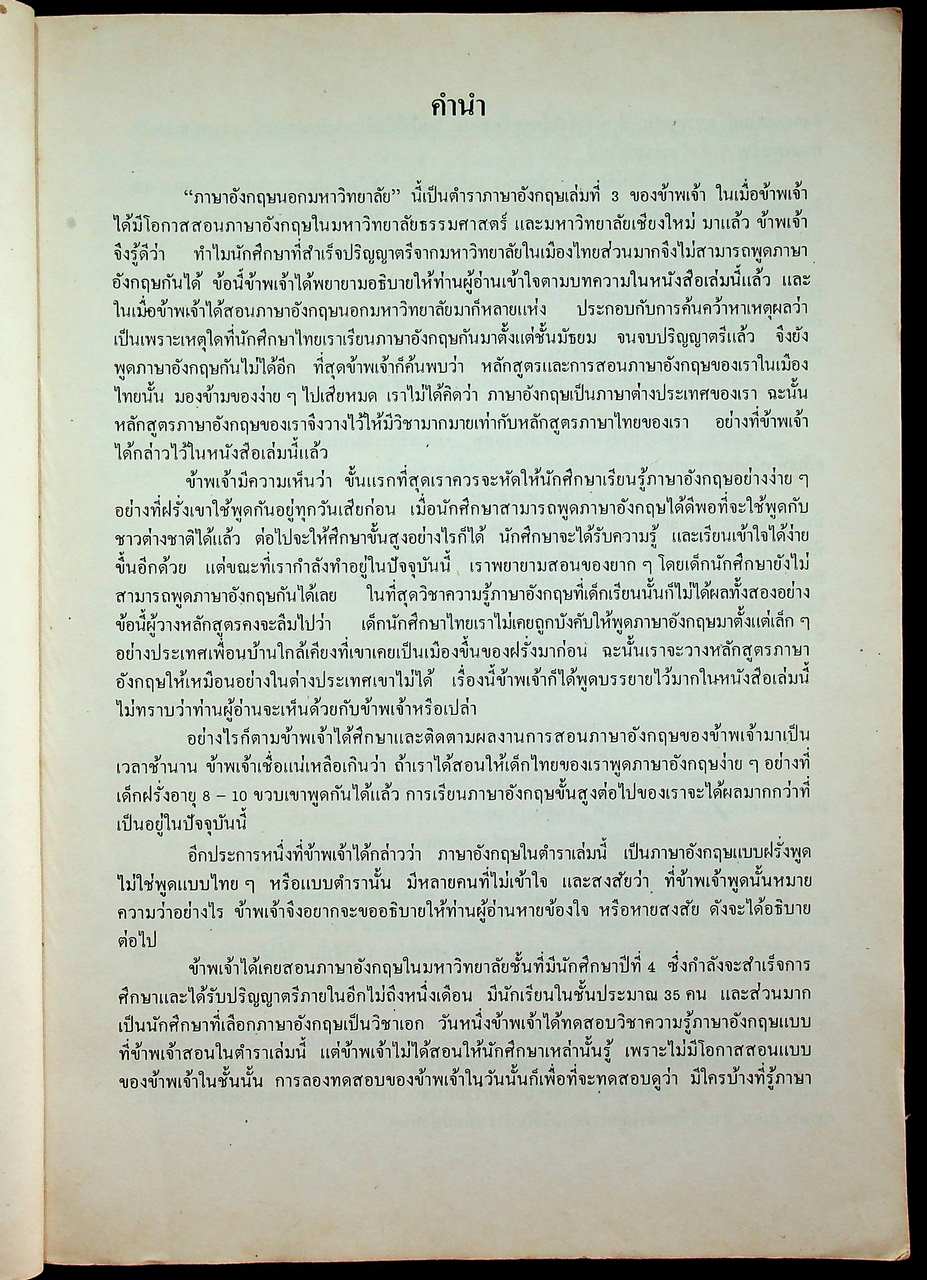 คำนำ
“ภาษาอังกฤษนอกมหาวิทยาลัย” นี้เป็นตำราภาษาอังกฤษเล่มที่ 3 ของข้าพเจ้า ในเมื่อข้าพเจ้า
ได้มีโอกาสสอนภาษาอังกฤษในมหาวิทยาลัยธรรมศาสตร์ และมหาวิทยาลัยเชียงใหม่ มาแล้ว ข้าพเจ้า
จึงรู้ดีว่า ทำไมนักศึกษาที่สำเร็จปริญญาตรีจากมหาวิทยาลัยในเมืองไทยส่วนมากจึงไม่สามารถพูดภาษา
อังกฤษกันได้ ข้อนี้ข้าพเจ้าได้พยายามอธิบายให้ท่านผู้อ่านเข้าใจตามบทความในหนังสือเล่มนี้แล้ว และ
ในเมื่อข้าพเจ้าได้สอนภาษาอังกฤษนอกมหาวิทยาลัยมาก็หลายแห่ง ประกอบกับการค้นคว้าหาเหตุผลว่า
เป็นเพราะเหตุใดที่นักศึกษาไทยเราเรียนภาษาอังกฤษกันมาตั้งแต่ชั้นมัธยม จนจบปริญญาตรีแล้ว จึงยัง
พูดภาษาอังกฤษกันไม่ได้อีก ที่สุดข้าพเจ้าก็ค้นพบว่า หลักสูตรและการสอนภาษาอังกฤษของเราในเมือง
ไทยนั้น มองข้ามของง่าย ๆ ไปเสียหมด เราไม่ได้คิดว่า ภาษาอังกฤษเป็นภาษาต่างประเทศของเรา ฉะนั้น
หลักสูตรภาษาอังกฤษของเราจึงวางไว้ให้มีวิชามากมายเท่ากับหลักสูตรภาษาไทยของเรา อย่างที่ข้าพเจ้า
ได้กล่าวไว้ในหนังสือเล่มนี้แล้ว
ข้าพเจ้ามีความเห็นว่า ขั้นแรกที่สุดเราควรจะหัดให้นักศึกษาเรียนรู้ภาษาอังกฤษอย่างง่าย ๆ
อย่างที่ฝรั่งเขาใช้พูดกันอยู่ทุกวันเสียก่อน เมื่อนักศึกษาสามารถพูดภาษาอังกฤษได้ดีพอที่จะใช้พูดกับ
ชาวต่างชาติได้แล้ว ต่อไปจะให้ศึกษาขั้นสูงอย่างไรก็ได้ นักศึกษาจะได้รับความรู้ และเรียนเข้าใจได้ง่าย
ขึ้นอีกด้วย แต่ขณะที่เรากำลังทำอยู่ในปัจจุบันนี้ เราพยายามสอนของยาก ๆ โดยเด็กนักศึกษายังไม่
สามารถพูดภาษาอังกฤษกันได้เลย ในที่สุดวิชาความรู้ภาษาอังกฤษที่เด็กเรียนนั้นก็ไม่ได้ผลทั้งสองอย่าง
ข้อนี้ผู้วางหลักสูตรคงจะลืมไปว่า เด็กนักศึกษาไทยเราไม่เคยถูกบังคับให้พูดภาษาอังกฤษมาตั้งแต่เล็ก ๆ
อย่างประเทศเพื่อนบ้านใกล้เคียงที่เขาเคยเป็นเมืองขึ้นของฝรั่งมาก่อน ฉะนั้นเราจะวางหลักสูตรภาษา
อังกฤษให้เหมือนอย่างในต่างประเทศเขาไม่ได้ เรื่องนี้ข้าพเจ้าก็ได้พูดบรรยายไว้มากในหนังสือเล่มนี้
ไม่ทราบว่าท่านผู้อ่านจะเห็นด้วยกับข้าพเจ้าหรือเปล่า
อย่างไรก็ตามข้าพเจ้าได้ศึกษาและติดตามผลงานการสอนภาษาอังกฤษของข้าพเจ้ามาเป็น
เวลาช้านาน ข้าพเจ้าเชื่อแน่เหลือเกินว่า ถ้าเราได้สอนให้เด็กไทยของเราพูดภาษาอังกฤษง่าย ๆ อย่างที่
เด็กฝรั่งอายุ 8 – 10 ขวบเขาพูดกันได้แล้ว การเรียนภาษาอังกฤษขั้นสูงต่อไปของเราจะได้ผลมากกว่าที่
เป็นอยู่ในปัจจุบันนี้
อีกประการหนึ่งที่ข้าพเจ้าได้กล่าวว่า ภาษาอังกฤษในตำราเล่มนี้ เป็นภาษาอังกฤษแบบฝรั่งพูด
ไม่ใช่พูดแบบไทย ๆ หรือแบบตำรานั้น มีหลายคนที่ไม่เข้าใจ และสงสัยว่า ที่ข้าพเจ้าพูดนั้นหมาย
ความว่าอย่างไร ข้าพเจ้าจึงอยากจะขออธิบายให้ท่านผู้อ่านหายข้องใจ หรือหายสงสัย ดังจะได้อธิบาย
ต่อไป
ข้าพเจ้าได้เคยสอนภาษาอังกฤษในมหาวิทยาลัยชั้นที่มีนักศึกษาปีที่ 4 ซึ่งกำลังจะสำเร็จการ
ศึกษาและได้รับปริญญาตรีภายในอีกไม่ถึงหนึ่งเดือน มีนักเรียนในชั้นประมาณ 35 คน และส่วนมาก
เป็นนักศึกษาที่เลือกภาษาอังกฤษเป็นวิชาเอก วันหนึ่งข้าพเจ้าได้ทดสอบวิชาความรู้ภาษาอังกฤษแบบ
ที่ข้าพเจ้าสอนในตำราเล่มนี้ แต่ข้าพเจ้าไม่ได้สอนให้นักศึกษาเหล่านั้นรู้ เพราะไม่มีโอกาสสอนแบบ
ของข้าพเจ้าในชั้นนั้น การลองทดสอบของข้าพเจ้าในวันนั้นก็เพื่อที่จะทดสอบดูว่า มีใครบ้างที่รู้ภาษา